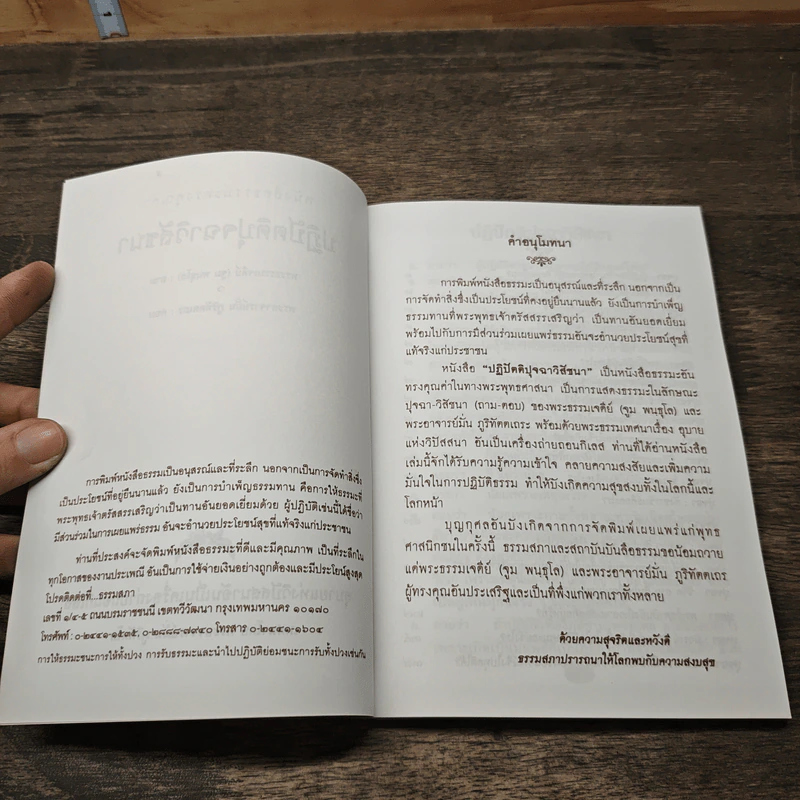 การพิมพ์หนังสือธรรมเป็นอนุสรณ์และที่ระลึก นอกจากเป็นการจัดทำสิ่งซึ่ง
เป็นประโยชน์ที่อยู่ยืนนานแล้ว ยังเป็นการบำเพ็ญธรรมทาน คือการให้ธรรมะที่
พระพุทธเจ้าตรัสสรรเสริญว่าเป็นทานอันยอดเยี่ยมด้วย ผู้ปฏิบัติเช่นนี้ได้ชื่อว่า
มีส่วนร่วมในการเผยแพร่ธรรม อันจะอำนวยประโยชน์สุขที่แท้จริงแก่ประชาชน
ท่านที่ประสงค์จะจัดพิมพ์หนังสือธรรมะที่ดีและมีคุณภาพ เป็นที่ระลึกใน
ทุกโอกาสของงานประเพณี อันเป็นการใช้จ่ายเงินอย่างถูกต้องและมีประโยชน์สูงสุด
โปรดติดต่อที่...ธรรมสภา
เลขที่ ๑/๔-๕ ถนนบรมราชชนนี เขตทวีวัฒนา กรุงเทพมหานคร ๑๐๑๗๐
โทรศัพท์ : ๐-๒๔๔๑-๑๕๓๕, ๐-๒๘๘๘-๗๙๔๐ โทรสาร ๐-๒๔๔๑-๑๖๐๔
การให้ธรรมะชนะการให้ทั้งปวง การรับธรรมะและนำไปปฏิบัติย่อมชนะการรับทั้งปวงเช่นกัน
คำอนุโมทนา
การพิมพ์หนังสือธรรมะเป็นอนุสรณ์และที่ระลึก นอกจากเป็น
การจัดทำสิ่งซึ่งเป็นประโยชน์ที่คงอยู่ยืนนานแล้ว ยังเป็นการบำเพ็ญ
ธรรมทานที่พระพุทธเจ้าตรัสสรรเสริญว่า เป็นทานอันยอดเยี่ยม
พร้อมไปกับการมีส่วนร่วมเผยแพร่ธรรมอันจะอำนวยประโยชน์สุขที่
แท้จริงแก่ประชาชน
หนังสือ “ปฏิปัตติปุจฉาวิสัชนา” เป็นหนังสือธรรมะอัน
ทรงคุณค่าในทางพระพุทธศาสนา เป็นการแสดงธรรมะในลักษณะ
ปุจฉา-วิสัชนา (ถาม-ตอบ) ของพระธรรมเจดีย์ (จูม พนฺธุโล) และ
พระอาจารย์มั่น ภูริทัตตเถระ พร้อมด้วยพระธรรมเทศนาเรื่อง อุบาย
แห่งวิปัสสนา อันเป็นเครื่องถ่ายถอนกิเลส ท่านที่ได้อ่านหนังสือ
เล่มนี้จักได้รับความรู้ความเข้าใจ คลายความสงสัยและเพิ่มความ
มั่นใจในการปฏิบัติธรรม ทำให้บังเกิดความสุขสงบทั้งในโลกนี้และ
โลกหน้า
บุญกุศลอันบังเกิดจากการจัดพิมพ์เผยแพร่แก่พุทธ
ศาสนิกชนในครั้งนี้ ธรรมสภาและสถาบันบันลือธรรมขอน้อมถวาย
แด่พระธรรมเจดีย์ (จูม พนฺธุโล) และพระอาจารย์มั่น ภูริทัตตเถร
ผู้ทรงคุณอันประเสริฐและเป็นที่พึ่งแก่พวกเราทั้งหลาย
ด้วยความสุจริตและหวังดี
ธรรมสภาปรารถนาให้โลกพบกับความสงบสุข